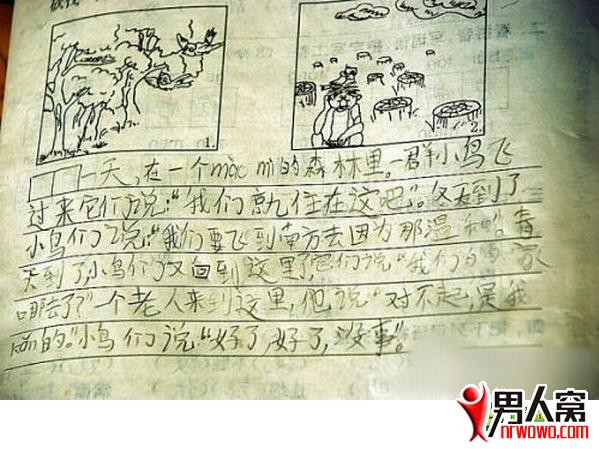 1.
2.
一天，在一个mào mì的森林里。一群小鸟飞
过来它们说：“我们就住在这吧”。冬天到了
小鸟们说：“我们要飞到南方去因为那温和”。春
天到了，小鸟们又回到这里了它们说“我们的家
哪去了？”一个老人来到这里，他说“对不起，是我
kǎn的。”小鸟们说“好了，好了，没事”。
男人窝
nrwowo.com